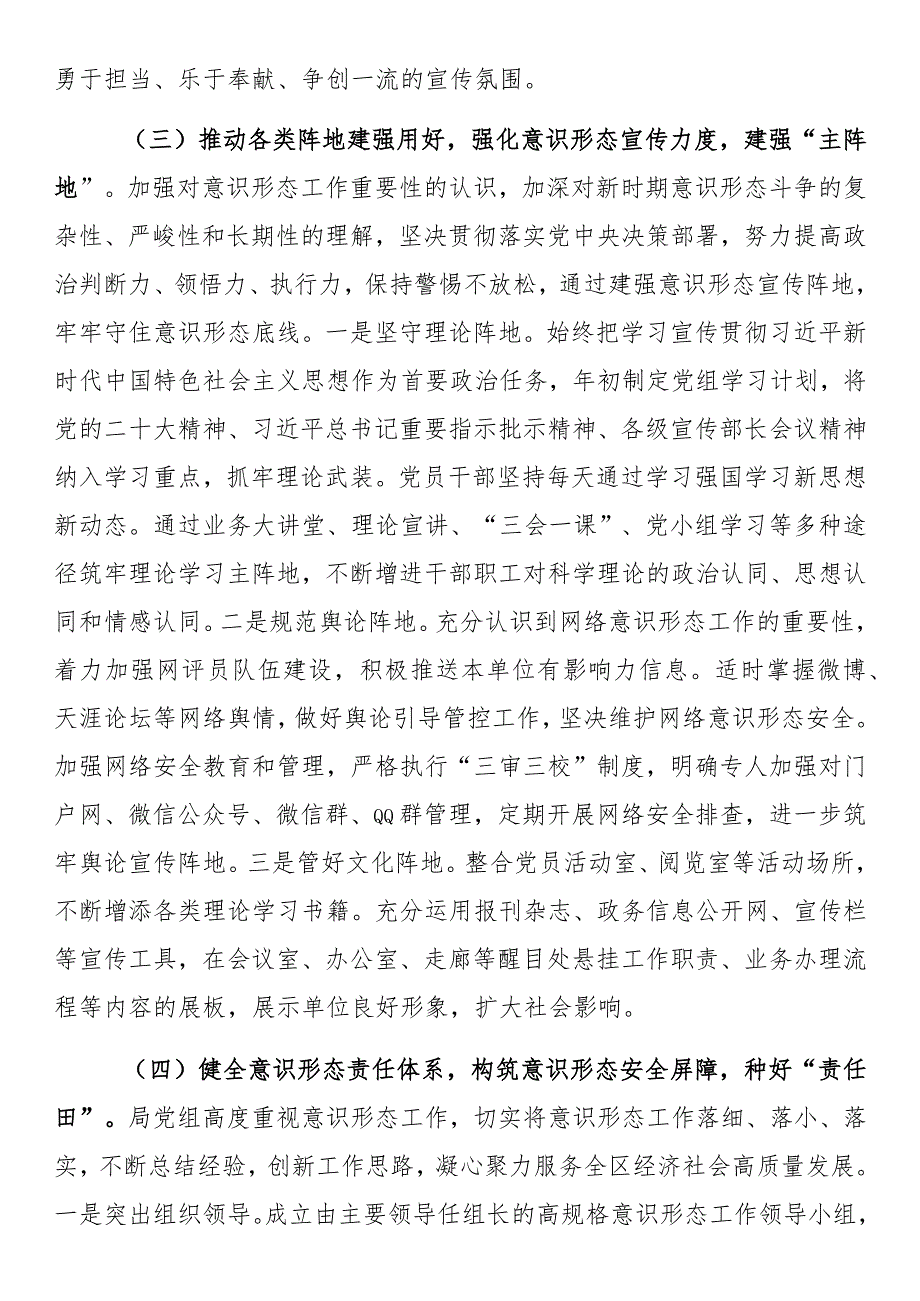 勇于担当、乐于奉献、争创一流的宣传氛围。
（三）推动各类阵地建强用好，强化意识形态宣传力度，建强“主阵
地”。加强对意识形态工作重要性的认识，加深对新时期意识形态斗争的复
杂性、严峻性和长期性的理解，坚决贯彻落实党中央决策部署，努力提高政
治判断力、领悟力、执行力，保持警惕不放松，通过建强意识形态宣传阵地，
牢牢守住意识形态底线。一是坚守理论阵地。始终把学习宣传贯彻习近平新
时代中国特色社会主义思想作为首要政治任务，年初制定党组学习计划，将
党的二十大精神、习近平总书记重要指示批示精神、各级宣传部长会议精神
纳入学习重点，抓牢理论武装。党员干部坚持每天通过学习强国学习新思想
新动态。通过业务大讲堂、理论宣讲、“三会一课”、党小组学习等多种途
径筑牢理论学习主阵地，不断增进干部职工对科学理论的政治认同、思想认
同和情感认同。二是规范舆论阵地。充分认识到网络意识形态工作的重要性，
着力加强网评员队伍建设，积极推送本单位有影响力信息。适时掌握微博、
天涯论坛等网络舆情，做好舆论引导管控工作，坚决维护网络意识形态安全。
加强网络安全教育和管理，严格执行“三审三校”制度，明确专人加强对门
户网、微信公众号、微信群、QQ群管理，定期开展网络安全排查，进一步筑
牢舆论宣传阵地。三是管好文化阵地。整合党员活动室、阅览室等活动场所，
不断增添各类理论学习书籍。充分运用报刊杂志、政务信息公开网、宣传栏
等宣传工具，在会议室、办公室、走廊等醒目处悬挂工作职责、业务办理流
程等内容的展板，展示单位良好形象，扩大社会影响。
（四）健全意识形态责任体系，构筑意识形态安全屏障，种好“责任
田”。局党组高度重视意识形态工作，切实将意识形态工作落细、落小、落
实，不断总结经验，创新工作思路，凝心聚力服务全区经济社会高质量发展。
一是突出组织领导。成立由主要领导任组长的高规格意识形态工作领导小组，